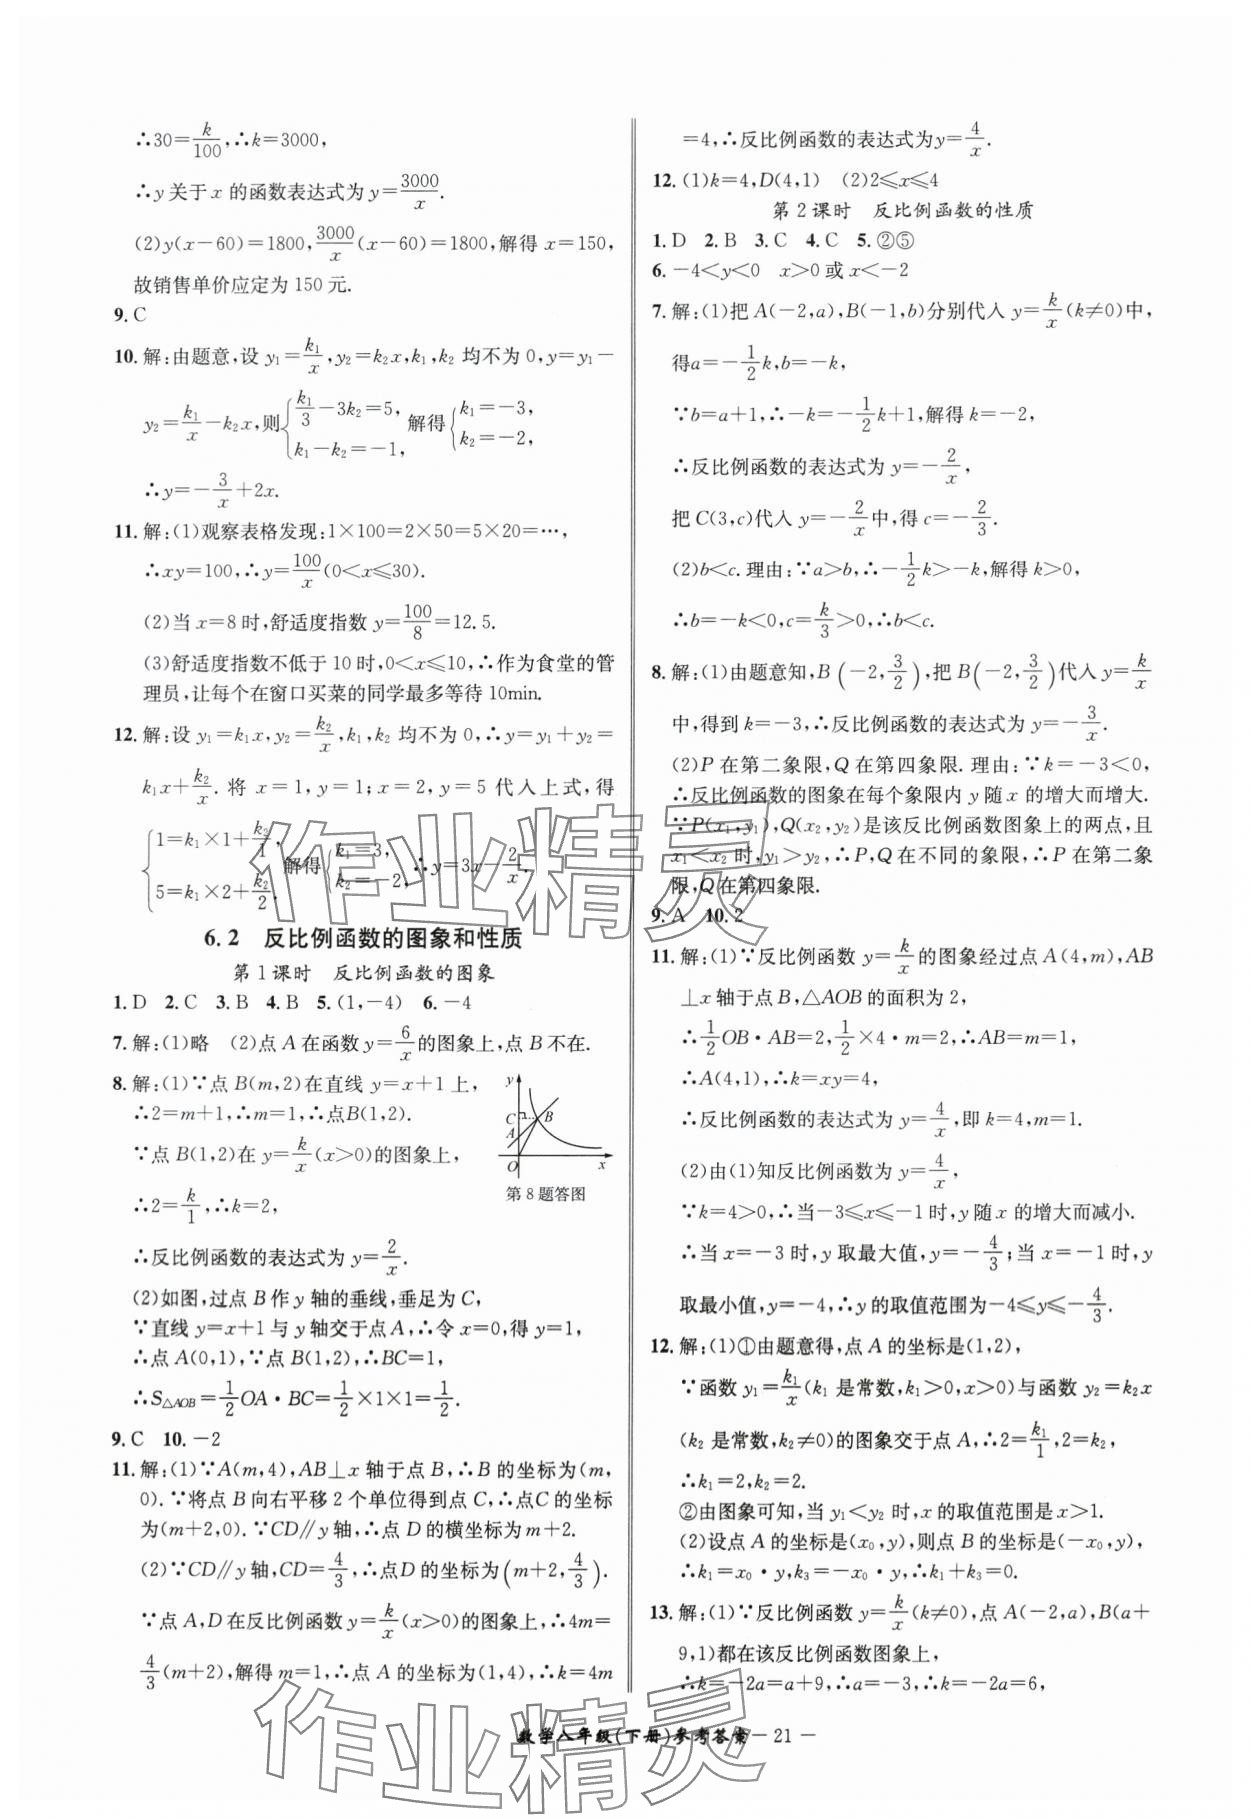 ∴30=k/100,∴k=3000,
∴y 关于 x 的函数表达式为 y=3000/x.
(2)y(x-60)=1800,3000/x(x-60)=1800,解得 x=150,
故销售单价应定为 150 元.
9. C
10. 解:由题意,设 y₁=k₁/x,y₂=k₂x,k₁,k₂ 均不为 0,y=y₁-
y₂=k₁/x-k₂x,则{k₁/3-3k₂=5, k₁-k₂=-1, 解得{k₁=-3, k₂=-2,
∴y=-3/x+2x.
11. 解:(1)观察表格发现:1×100=2×50=5×20=…,
∴xy=100,∴y=100/x(0<x≤30).
(2)当 x=8 时,舒适度指数 y=100/8=12.5.
(3)舒适度指数不低于 10 时,0<x≤10,∴作为食堂的管
理员,让每个在窗口买菜的同学最多等待10min.
12. 解:设 y₁=k₁x,y₂=k₂/x,k₁,k₂ 均不为 0,∴y=y₁+y₂=
k₁x+k₂/x. 将 x=1,y=1;x=2,y=5 代入上式,得
{1=k₁×1+k₂/1, 5=k₁×2+k₂/2. 解得{k₁=3, k₂=-2, ∴y=3x-2/x.
6.2 反比例函数的图象和性质
第 1 课时 反比例函数的图象
1. D 2. C 3. B 4. B 5. (1,-4) 6. -4
7. 解:(1)略 (2)点 A 在函数 y=6/x的图象上,点 B 不在.
8. 解:(1)∵点 B(m,2)在直线 y=x+1 上,
∴2=m+1,∴m=1,∴点B(1,2).
∵点 B(1,2)在 y=k/x(x>0)的图象上,
∴2=k/1,∴k=2,
y
C
B
A
O
x
第 8 题答图
∴反比例函数的表达式为 y=2/x.
(2)如图,过点 B 作 y 轴的垂线,垂足为 C,
∵直线 y=x+1 与 y 轴交于点 A,∴令 x=0,得 y=1,
∴点 A(0,1),∵点 B(1,2),∴BC=1,
∴S△AOB=1/2OA·BC=1/2×1×1=1/2.
9. C 10. -2
11. 解:(1)∵A(m,4),AB⊥x 轴于点 B,∴B 的坐标为(m,
0). ∵将点 B 向右平移 2 个单位得到点 C,∴点C 的坐标
为(m+2,0). ∵CD∥y 轴,∴点 D 的横坐标为 m+2.
(2)∵CD∥y 轴,CD=4/3,∴点D 的坐标为(m+2,4/3).
∵点 A,D 在反比例函数 y=k/x(x>0)的图象上,∴4m=
4/3(m+2),解得 m=1,∴点 A 的坐标为(1,4),∴k=4m
=4,∴反比例函数的表达式为y=4/x.
12. (1)k=4,D(4,1) (2)2≤x≤4
第 2 课时 反比例函数的性质
1. D 2. B 3. C 4. C 5. ②⑤
6. -4<y<0 x>0 或 x<-2
7. 解:(1)把 A(-2,a),B(-1,b)分别代入 y=k/x(k≠0)中,
得a=-1/2k,b=-k,
∵b=a+1,∴-k=-1/2k+1,解得 k=-2,
∴反比例函数的表达式为 y=-2/x,
把 C(3,c)代入 y=-2/x中,得 c=-2/3.
(2)b<c. 理由:∵a>b,∴-1/2k>-k,解得 k>0,
∴b=-k<0,c=k/3>0,∴b<c.
8. 解:(1)由题意知,B(-2,3/2),把 B(-2,3/2)代入 y=k/x
中,得到 k=-3,∴反比例函数的表达式为 y=-3/x.
(2)P 在第二象限,Q 在第四象限. 理由:∵k=-3<0,
∴反比例函数的图象在每个象限内 y 随 x 的增大而增大.
∵P(x₁,y₁),Q(x₂,y₂)是该反比例函数图象上的两点,且
x₁<x₂ 时,y₁>y₂,∴P,Q 在不同的象限,∴P 在第二象
限,Q 在第四象限.
9. A 10. 2
11. 解:(1)∵反比例函数 y=k/x的图象经过点 A(4,m),AB
⊥x 轴于点 B,△AOB 的面积为 2,
∴1/2OB·AB=2,1/2×4·m=2,∴AB=m=1,
∴A(4,1),∴k=xy=4,
∴反比例函数的表达式为 y=4/x,即 k=4,m=1.
(2)由(1)知反比例函数为 y=4/x,
∵k=4>0,∴当-3≤x≤-1 时,y 随 x 的增大而减小.
∴当 x=-3 时,y 取最大值,y=-4/3;当 x=-1 时,y
取最小值,y=-4,∴y 的取值范围为-4≤y≤-4/3.
12. 解:(1)①由题意得,点 A 的坐标是(1,2),
∵函数 y₁=k₁/x(k₁ 是常数,k₁>0,x>0)与函数 y₂=k₂x
(k₂ 是常数,k₂≠0)的图象交于点 A,∴2=k₁/1,2=k₂,
∴k₁=2,k₂=2.
②由图象可知,当 y₁<y₂ 时,x 的取值范围是 x>1.
(2)设点 A 的坐标是(x₀,y),则点 B 的坐标是(-x₀,y),
∴k₁=x₀·y,k₃=-x₀·y,∴k₁+k₃=0.
13. 解:(1)∵反比例函数 y=k/x(k≠0),点 A(-2,a),B(a+
9,1)都在该反比例函数图象上,
∴k=-2a=a+9,∴a=-3,∴k=-2a=6,
数学八年级(下册)参考答案 — 21 —
作业精灵
作业精灵